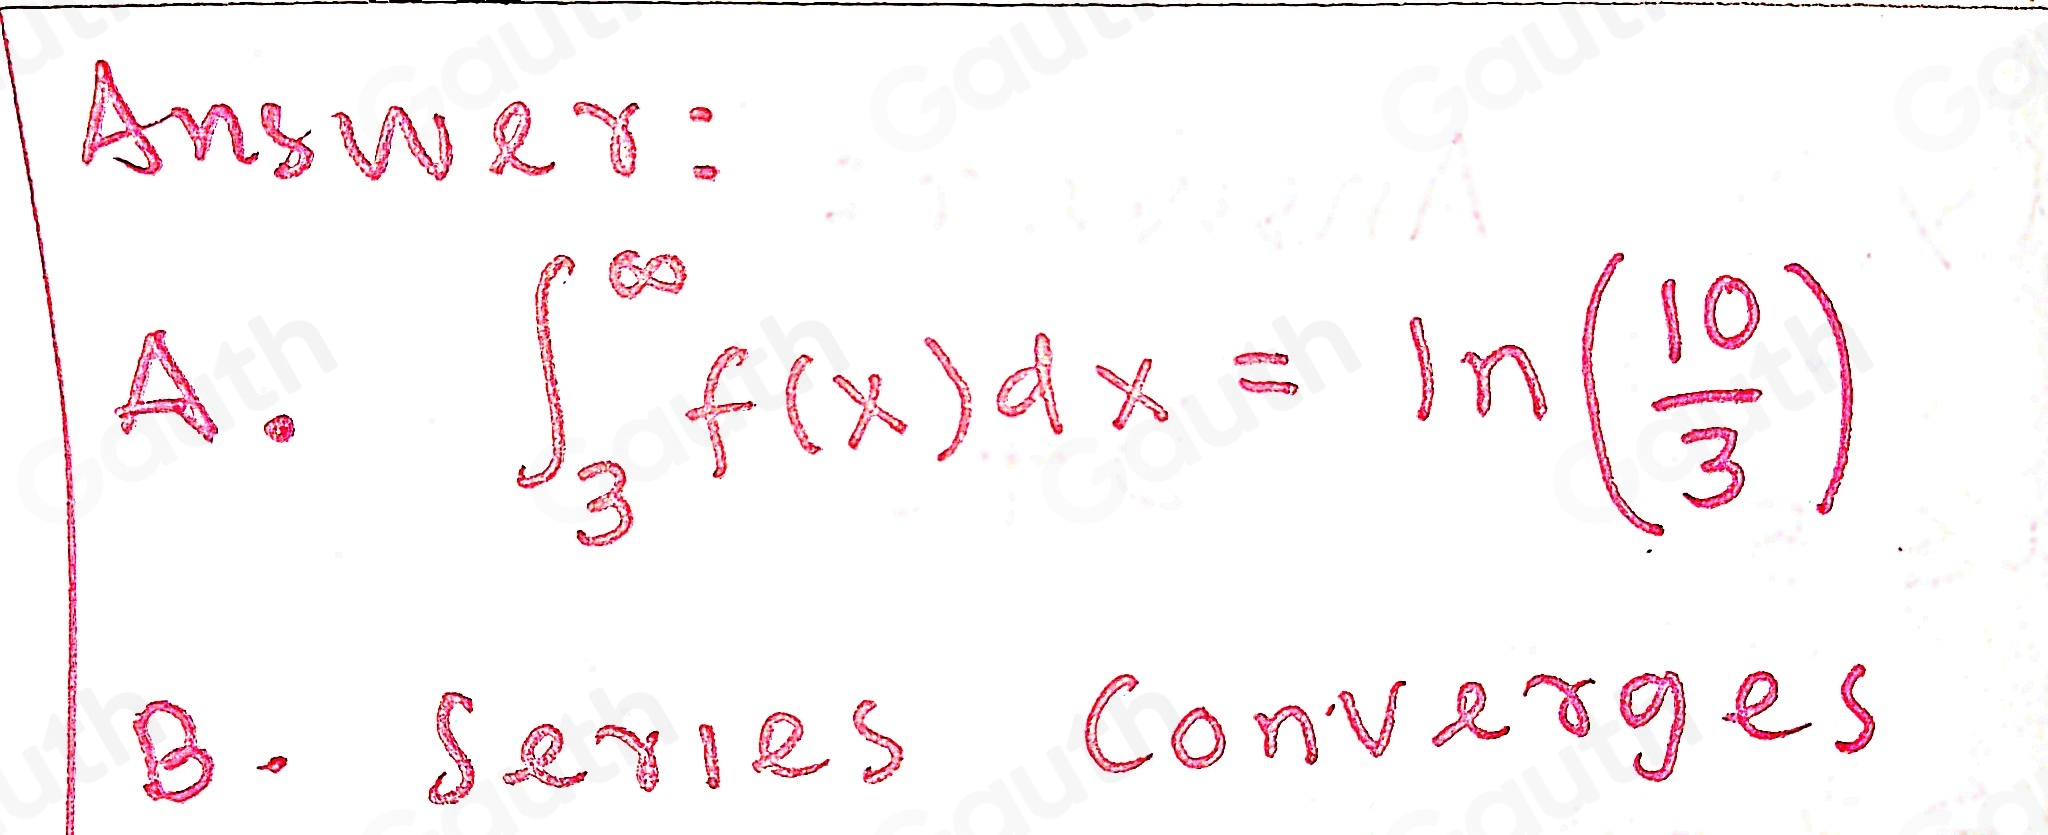 Answer:
A. ∫₃^∞ f(x)dx = ln(10/3)
B. Series Converges